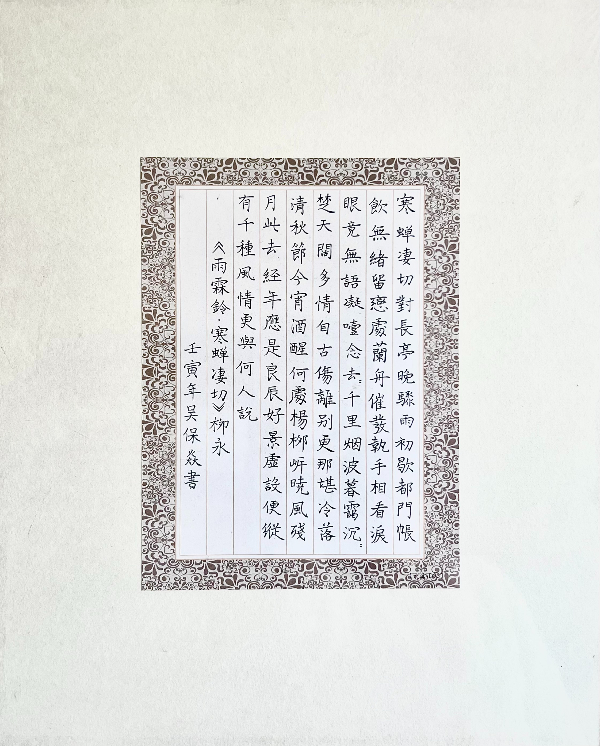 寒蟬凄切對長亭晚驟雨初歇都門帳
飲無緒留戀處蘭舟催發執手相看淚
眼竟無語凝噎念去〻千里烟波暮靄沉〻
楚天闊多情自古傷離別更那堪冷落
清秋節今宵酒醒何處楊柳岍曉風殘
月此去經年應是良辰好景虛設便縱
有千種風情更與何人說
《雨霖鈴·寒蟬凄切》柳永
壬寅年吴保焱書